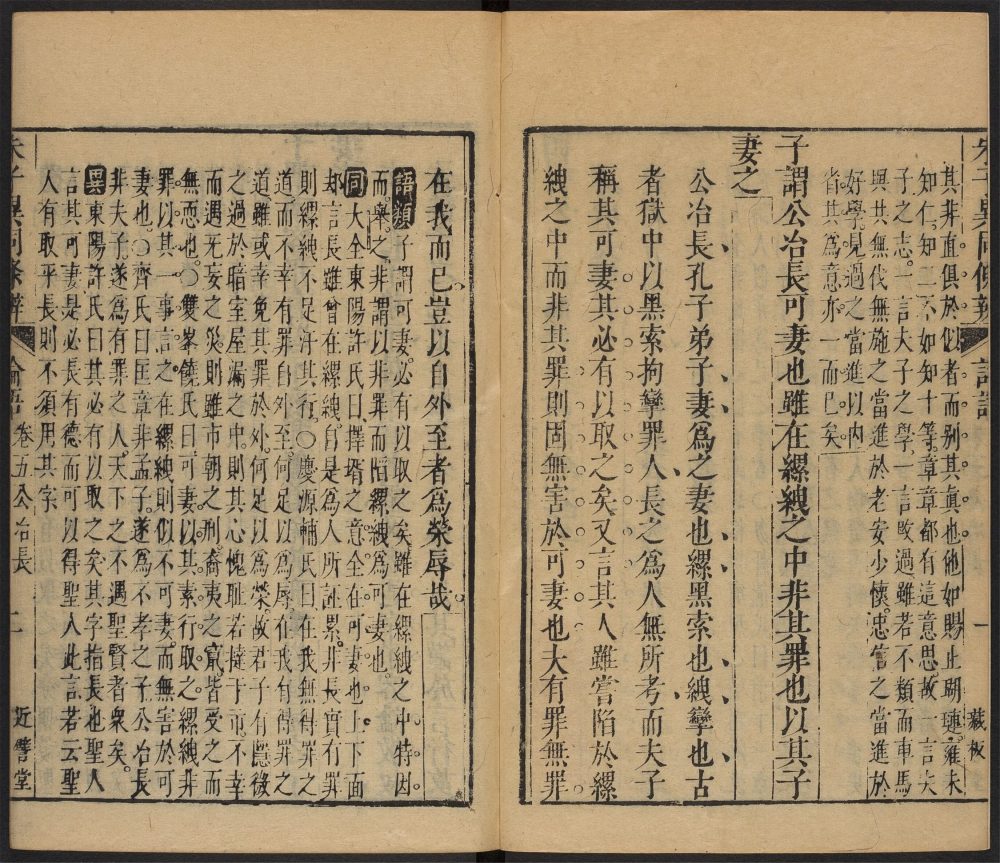 朱子異同條辨 論語 一 藏板
其非直俱於似者而别其真也他如賜止瑚璉雍未
知仁知二不如知十等章章都有這意思故一言夫
子之志一言夫子之學一言改過雖若不類而車馬
與共無伐無施之當進於老安少懷忠信之當進於
好學見過之當進以内
省其為意亦一而已矣
子謂公冶長可妻也雖在縲絏之中非其罪也以其子
妻之
公冶長孔子弟子妻為之妻也縲黑索也絏攣也古
者獄中以黑索拘攣罪人長之為人無所考而夫子
稱其可妻其必有以取之矣又言其人雖嘗陷於縲
絏之中而非其罪則固無害於可妻也夫有罪無罪
在我而已豈以自外至者為榮辱哉
語類子謂可妻必有以取之矣雖在縲絏之中特因
而舉之非謂以非罪而陷縲絏為可妻也
同大全東陽許氏曰擇壻之意全在可妻也上下面
却言長雖曾在縲絏自是為人所誣累非長實有罪
則縲絏不足汙其行○慶源輔氏曰在我無得罪之
道而不幸有罪自外至何足以為辱在我有得罪之
道雖或幸免其罪於外何足以為榮故君子有隱微
之過於暗室屋漏之中則其心愧耻若撻于市不幸
而遇无妄之災則雖市朝之刑裔夷之竄皆受之而
無恧也○雙峯饒氏曰可妻以其素行取之縲絏非
罪以其一事言之在縲絏則似不可妻而無害於可
妻也○齊氏曰匡章非孟子遂為不孝之子公冶長
非夫子遂為有罪之人天下之不遇聖賢者衆矣
異東陽許氏曰其必有以取之矣其字指長也聖人
言其可妻是必長有德而可以得聖人此言若云聖
人有取乎長則不須用其字
朱子異同條辨 論語 卷五公冶長 二 近譬堂